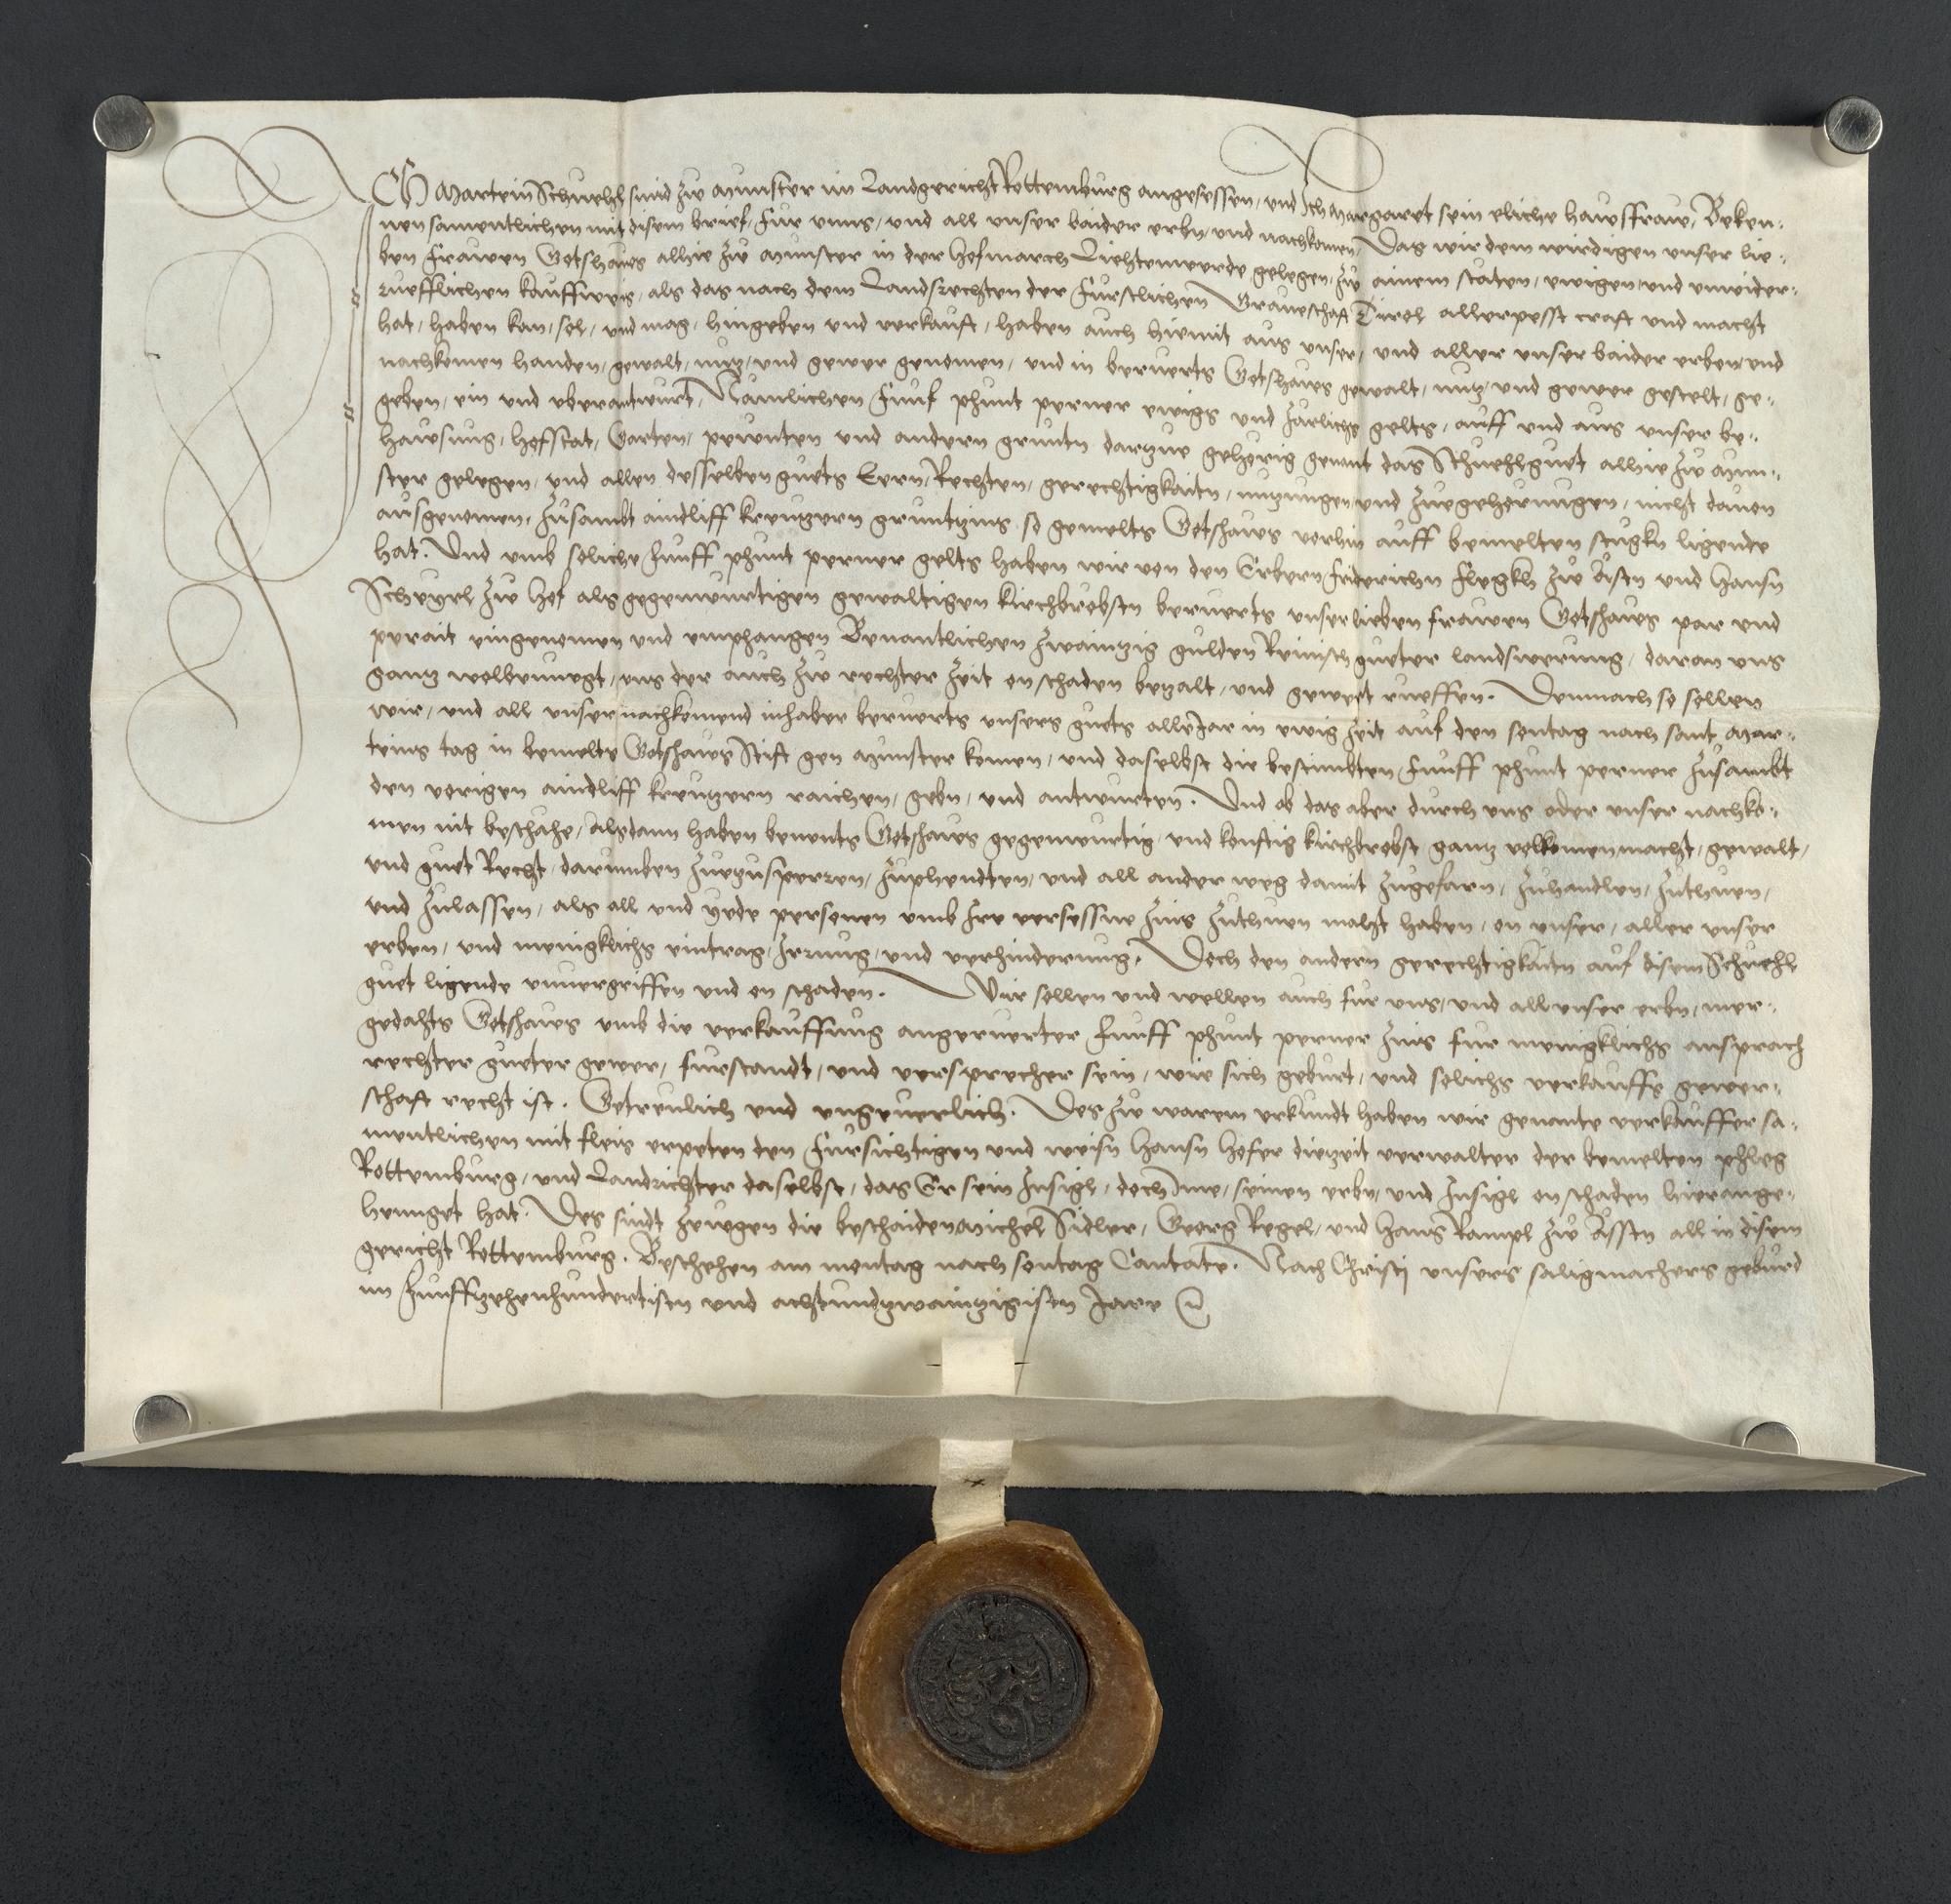 ICH Martein Schuehl smid zw Munster im Landgericht Rottemburg angesessen, und Ich Margaret sein eliche hawsfraw, Beken-
nen samentlichen mit disem brief, fur unns, und all unser baider erbn, und nachkomen, Das wir dem wirdigen unser lie-
ben frawen Gotshaws alhie zw Munster in der hofmarch Liechtenwerde gelegen, zu ainem stäten, ewigen, und unwider-
rueflichen kauffweis, als das nach dem Landsrechten der furstlichen Graveschaft Tirol allerpesst craft und macht
hat, haben kan, sol, und mag, hingeben und verkauft, haben auch hiemit aus unser, und aller unser baider erben, und
nachkomen handen, gewalt, nutz, und gewer genomen, und in beruerts Gotshaws gewalt, nutz, und gewer gestelt, ge-
geben, ein und uberantwurt, Nämlichen funf phunt perner ewigs und järlichs gelts, auff und aus unser be-
hawsung, hofstat, Garten, pewnten und andern gruntn dartzue gehorig genant das Schuehlguet alhie zw Mun-
ster gelegen, und allen desselben guets Eern, Rechten, gerechtigkaitn, nutzungen, und zuegehorungen, nicht davon
ausgenomen, zusambt aindliff kreutzern gruntzins so gemelts Gotshaws vorhin auff bemelten stugkn ligende
hat. Und umb soliche funff phunt perner gelts haben wir von den Erbern Friderichn Flegkh zw Ästen und Hansn
Scheyrl zw Hof als gegenwurtigen gewaltigen kirchbrobsten beruerts unser lieben frawen Gotshaws par und
perait eingenomen und emphangen Benantlichen zwaintzig gulden Reinisch gueter landswerung, daran uns
gantz wolbenuegt, uns der auch zw rechter zeit on schaden betzalt, und gewert rueffen. Demnach so sollen
wir, und all unser nachkomend inhaber beruerts unsers guets alle Jar in ewig zeit auf den sontag nach sant Mar-
teins tag in bemelts Gotshaws Stift gen Munster komen, und daselbst die bestimbten funff phunt perner zusambt
den vorigen aindliff kreutzern raichen, gebn, und antwurten. Und ob das aber durch uns oder unser nachko-
men nit beschähe, alsdann haben benents Gotshaws gegenwurtig und konftig kirchbrobst gantz volkomen macht, gewalt,
und guet Recht, darumben zuetzusperren, zuphendten, und all ander weg damit zugefarn, zuhandlen, zuthuen,
und zulassen, als all und yede personen umb Ire versessne zins zuthuen macht haben, on unser, aller unser
erben, und menigklichs eintrag, Irrung, und verhinderung. Doch den andern gerechtigkaitn auf disem Schuehl
guet ligende unvergriffen und on schaden. Wir sollen und wellen auch fur uns, und all unser erbn, mer-
gedachts Gotshaws umb die verkauffung angeruerter funff phunt perner zins fur menigklichs ansprach
rechter gueter gewer, furstandt, und versprecher sein, wie sich geburt, und solichs verkauffs gewer-
schaft recht ist. Getreulich und ungeverlich. Des zw warem urkundt haben wir genante verkauffer sa-
mentlichen mit fleis erpeten den fursichtigen und weisn Hansn Hofer dietzeit verwalter der bemelten phleg
Rottemburg, und Landrichter daselbst, das Er sein Insigl, doch Ime, seinen erbn, und Insigl on schaden hierange-
hennget hat. Des sindt zewgen die beschaiden Michel Sidler, Georg Regel, und Hanns Rampl zw Ästen all in disem
gericht Rottemburg. Beschehen am montag nach sontag Cantate. Nach Christi unsers saligmachers geburd
im Funffzehenhundertisten und achtundzwaintzigisten Jare